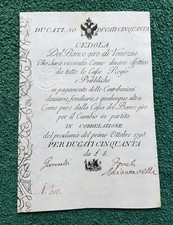 DUCATI N.º DUCATI CINQUANTA
CEDOLA
Del Banco giro di Venezia
Che sarà ricevuta Come denaro effettivo
da tutte le Casse Regie
e Pubbliche
in pagamento delle Contribuzioni
daziarie, fondiarie, e qualunque altra
Come pure dalla Cassa del Banco giro
per il Cambio in partita
IN CORRELAZIONE
del proclama del primo Ottobre 1798
PER DUCATI CINQUANTA